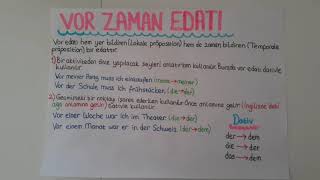 VOR ZAMAN EDATI
Vor edatı hem yer bildiren (Lokale präposition) hem de zaman bildiren (Temporale
präposition) bir edattır.
1) Bir aktiviteden önce yapılacak şeyleri anlatırken kullanılır. Burada vor edatı dativle
kullanılır.
Vor meiner Party muss ich einkaufen (meine → meiner)
Vor der Schule muss ich frühstücken. (die → der)
2) Geçmişteki bir noktayı işaret ederken kullanılır. Önce anlamına gelir. (İngilizce deki
ago anlamına gelir) dativle kullanılır.
Vor einer Woche war ich im Theater (die → der)
Vor einem Monat war er in der Schweiz. (der → dem)
Dativ
der → dem
die → der
das → dem